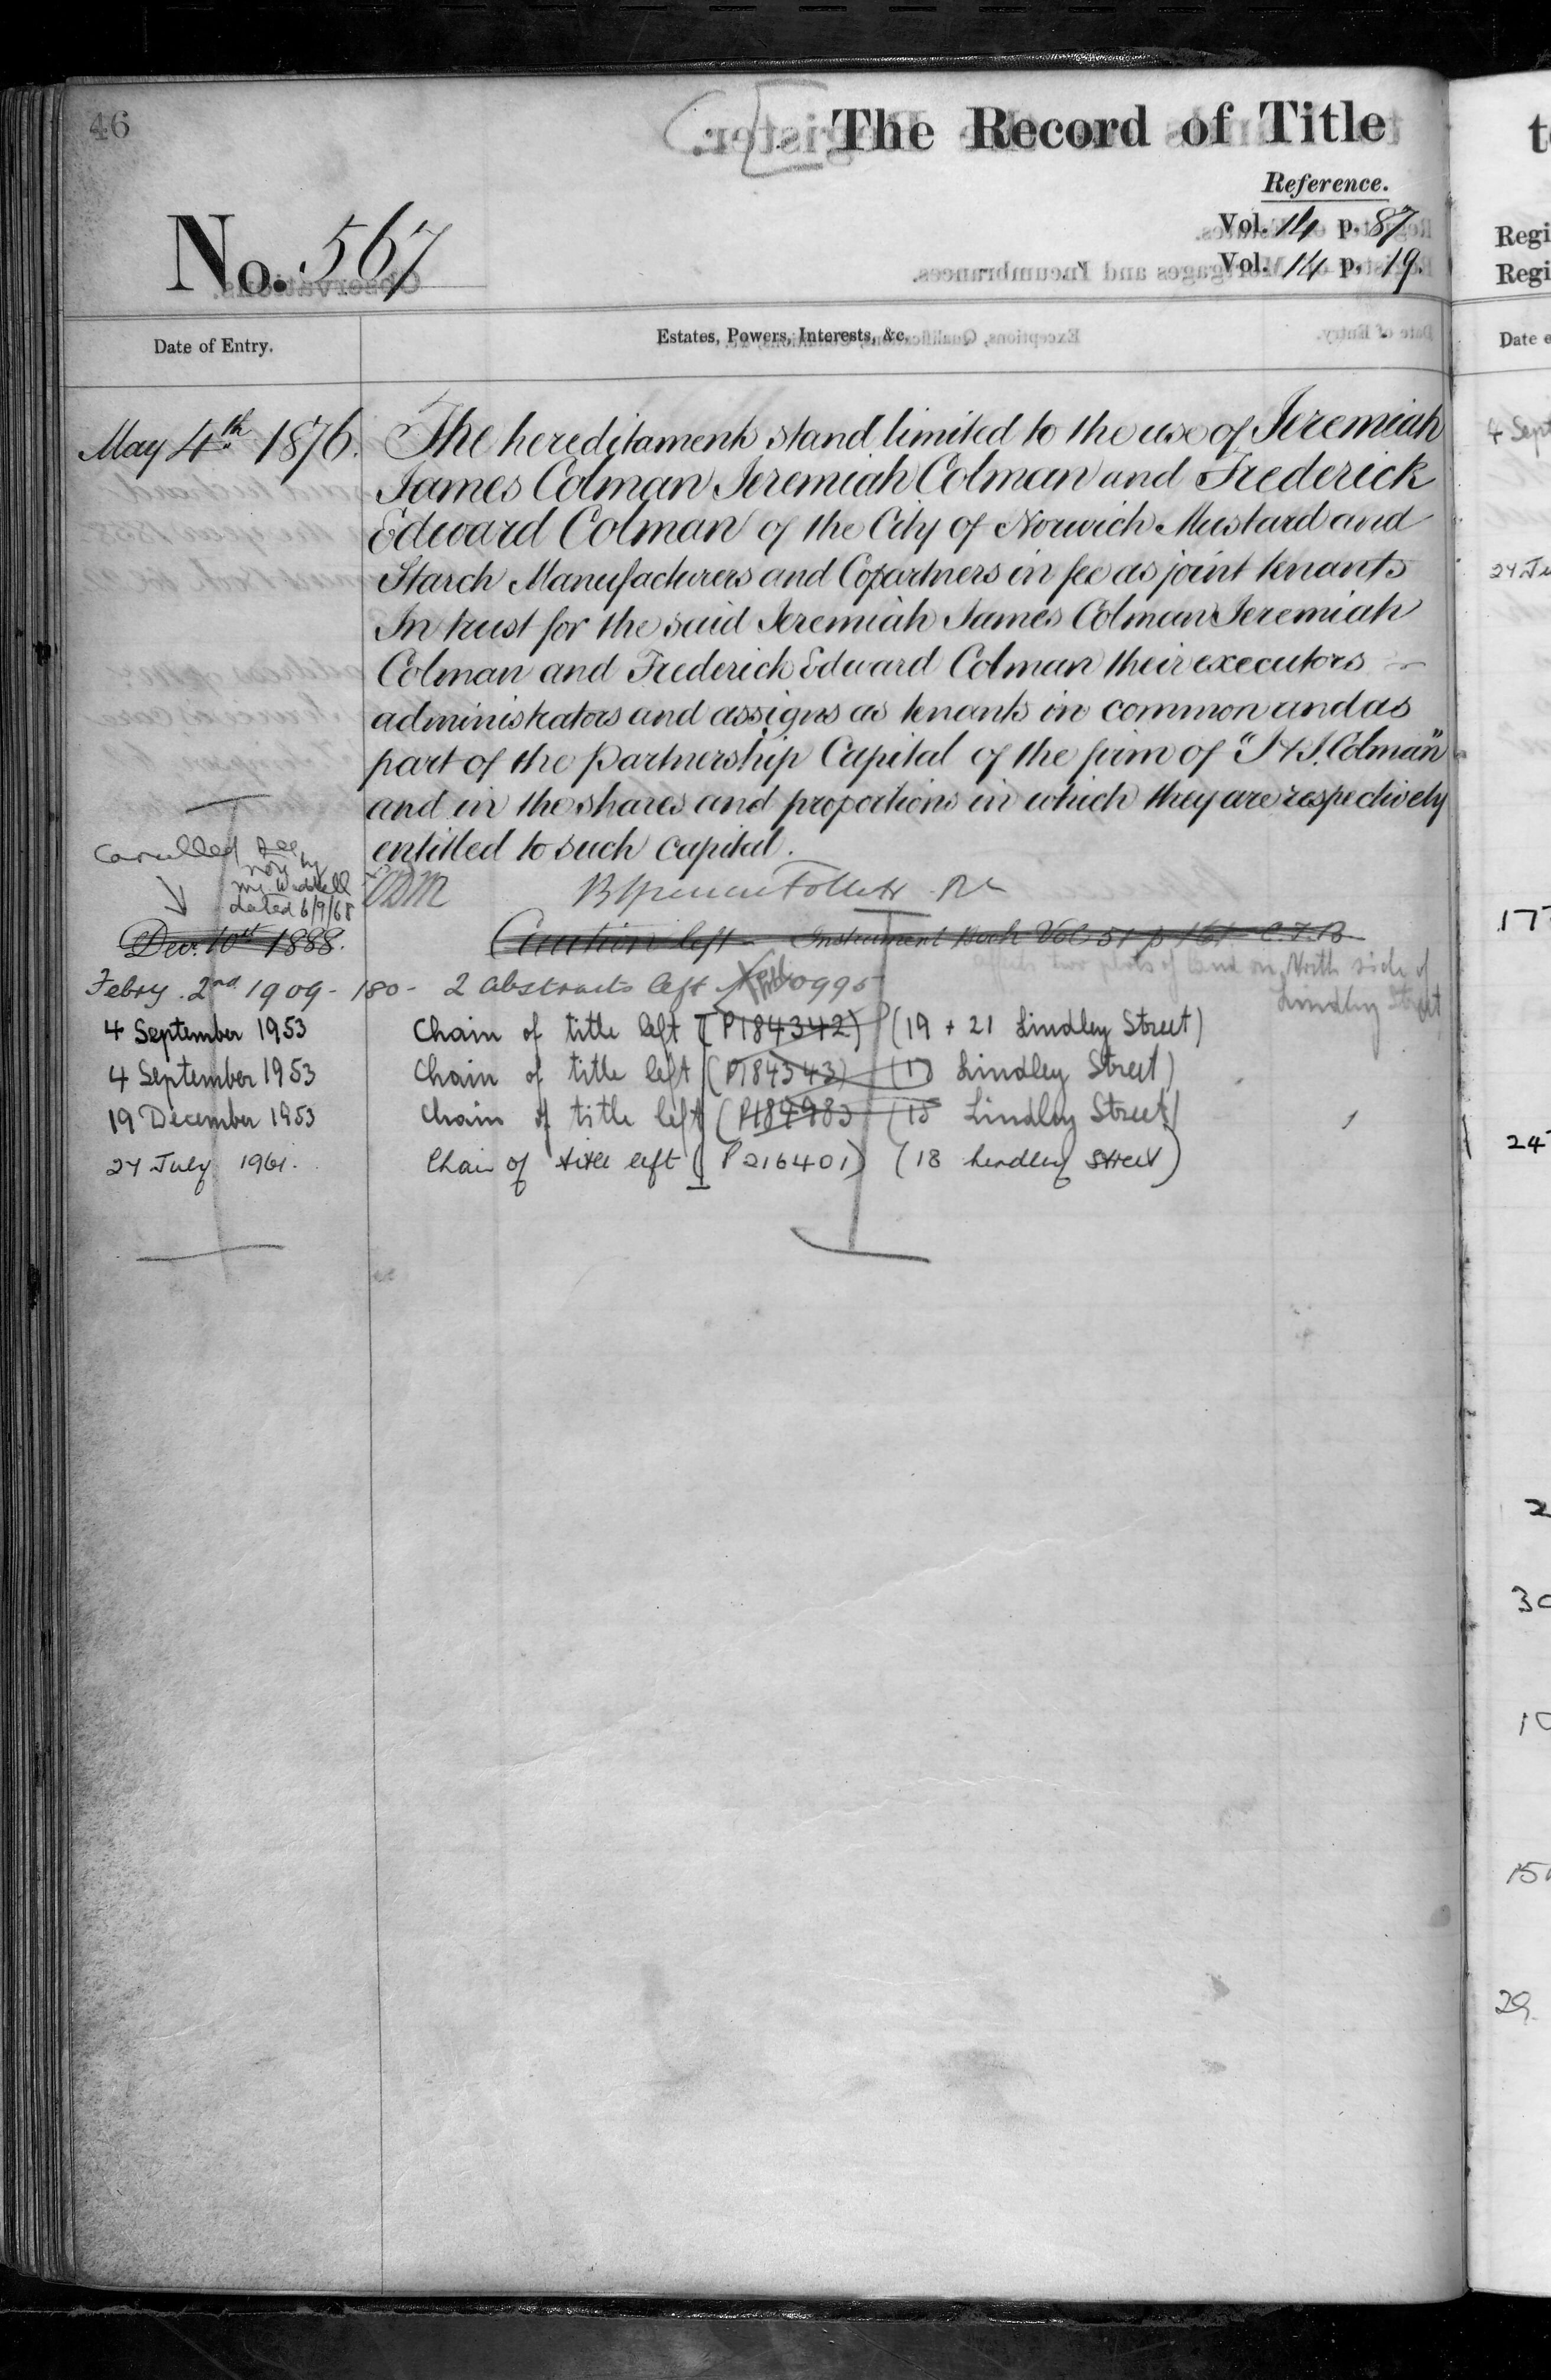 46
The Record of Title
Reference.
No. 567
Vol. 14 p. 87
Vol. 14 p. 19.
Date of Entry.
Estates, Powers, Interests, &c.
May 4th 1876.
The hereditaments stand limited to the use of Jeremiah
James Colman Jeremiah Colman and Frederick
Edward Colman of the City of Norwich Mustard and
Starch Manufacturers and Copartners in fee as joint tenants
In trust for the said Jeremiah James Colman Jeremiah
Colman and Frederick Edward Colman their executors
administrators and assigns as tenants in common and as
part of the partnership Capital of the firm of "J & J. Colman"
and in the shares and proportions in which they are respectively
entitled to such capital.
Cancelled see
note by
Mr Waddell
dated 6/9/68
B Spencer Follett
Dec. 10th 1888.
Caution left Instrument Book Vol 51 p 161 C.T.B
affects two plots of land on North side of
Lindley Street
Febry. 2nd 1909 - 180 - 2 Abstracts left 0995
4 September 1953 Chain of title left (P184342) (19 + 21 Lindley Street)
4 September 1953 Chain of title left (P184343) (17 Lindley Street)
19 December 1953 Chain of title left (15 Lindley Street)
24 July 1961. Chain of title left (P216401) (18 Lindley Street)
t
Regi
Regi
Date
4 Sept
17
24
2
30
10
15
29